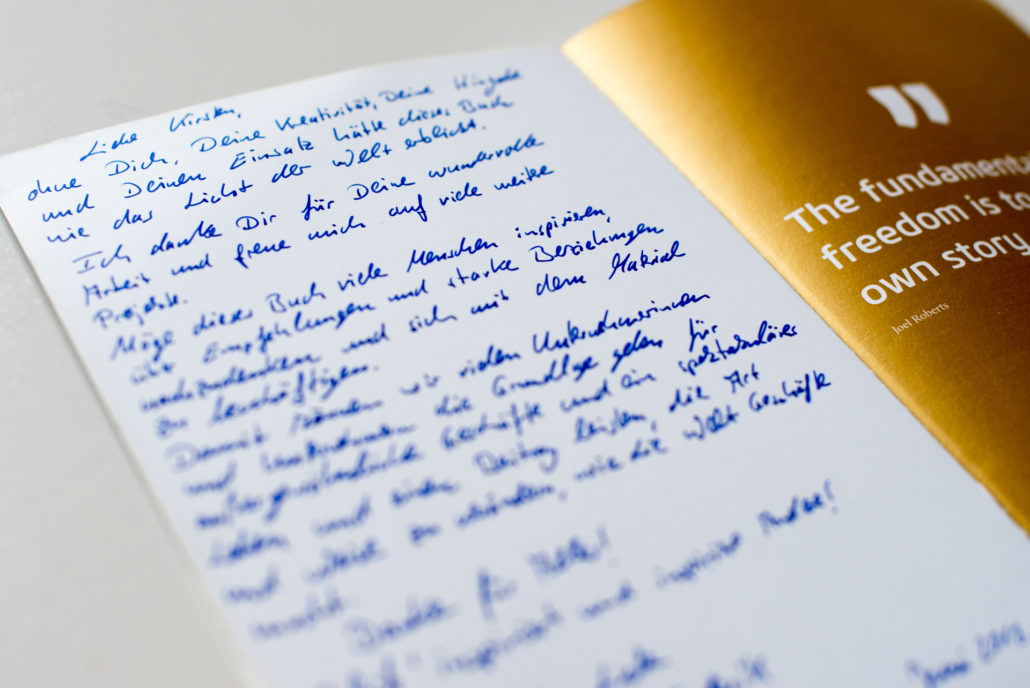 Liebe Kirsten,
ohne Dich, Deine Kreativität, Deine Hingabe
und Deinen Einsatz hätte dieses Buch
nie das Licht der Welt erblickt.
Ich danke Dir für Deine wundervolle
Arbeit und freue mich auf viele weitere
Projekte.
Möge dieses Buch viele Menschen inspirieren,
über Empfehlungen und starke Beziehungen
nachzudenken und sich mit dem Material
zu beschäftigen.
Damit können wir vielen Unternehmerinnen
und Unternehmern die Grundlage geben für
außergewöhnliche Geschäfte und ein spektakuläres
Leben und einen Beitrag leisten, die Art
und Weise zu verändern, wie die Welt Geschäfte
macht.
Danke für Alles!
inspiriert und inspiriere Andere!
"
The fundamenta
freedom is to
own story
Joel Roberts